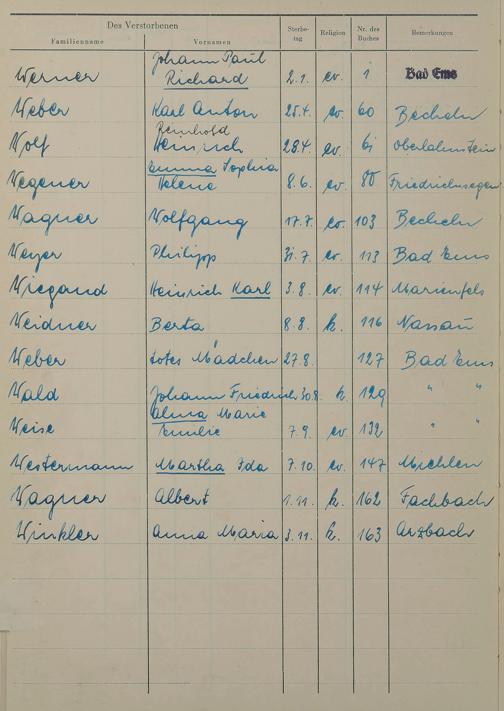 Des Verstorbenen
Familienname Vornamen Sterbe-tag Religion Nr. des Buches Bemerkungen
Johann Paul
Werner Richard 2.1. ev. 1 Bad Ems
Weber Karl Anton 25.4. ev. 60 Becheln
Reinhold
Wolf Heinrich 28.4. ev. 61 Oberlahnstein
Emma Sophia
Wegener Helene 8.6. ev. 80 Friedrichssegen
Wagner Wolfgang 17.7. ev. 103 Becheln
Weyer Philipp 31.7. ev. 113 Bad Ems
Wiegand Heinrich Karl 3.8. ev. 114 Marienfels
Weidner Berta 8.8. k. 116 Nassau
Weber totes Mädchen 27.8. 127 Bad Ems
Wald Johann Friedrich 30.8. k. 129 " "
Alma Marie
Weise Emilie 7.9. ev. 132 " "
Westermann Martha Ida 7.10. ev. 147 Miehlen
Wagner Albert 1.11. k. 162 Fachbach
Winkler Anna Maria 3.11. k. 163 Arzbach